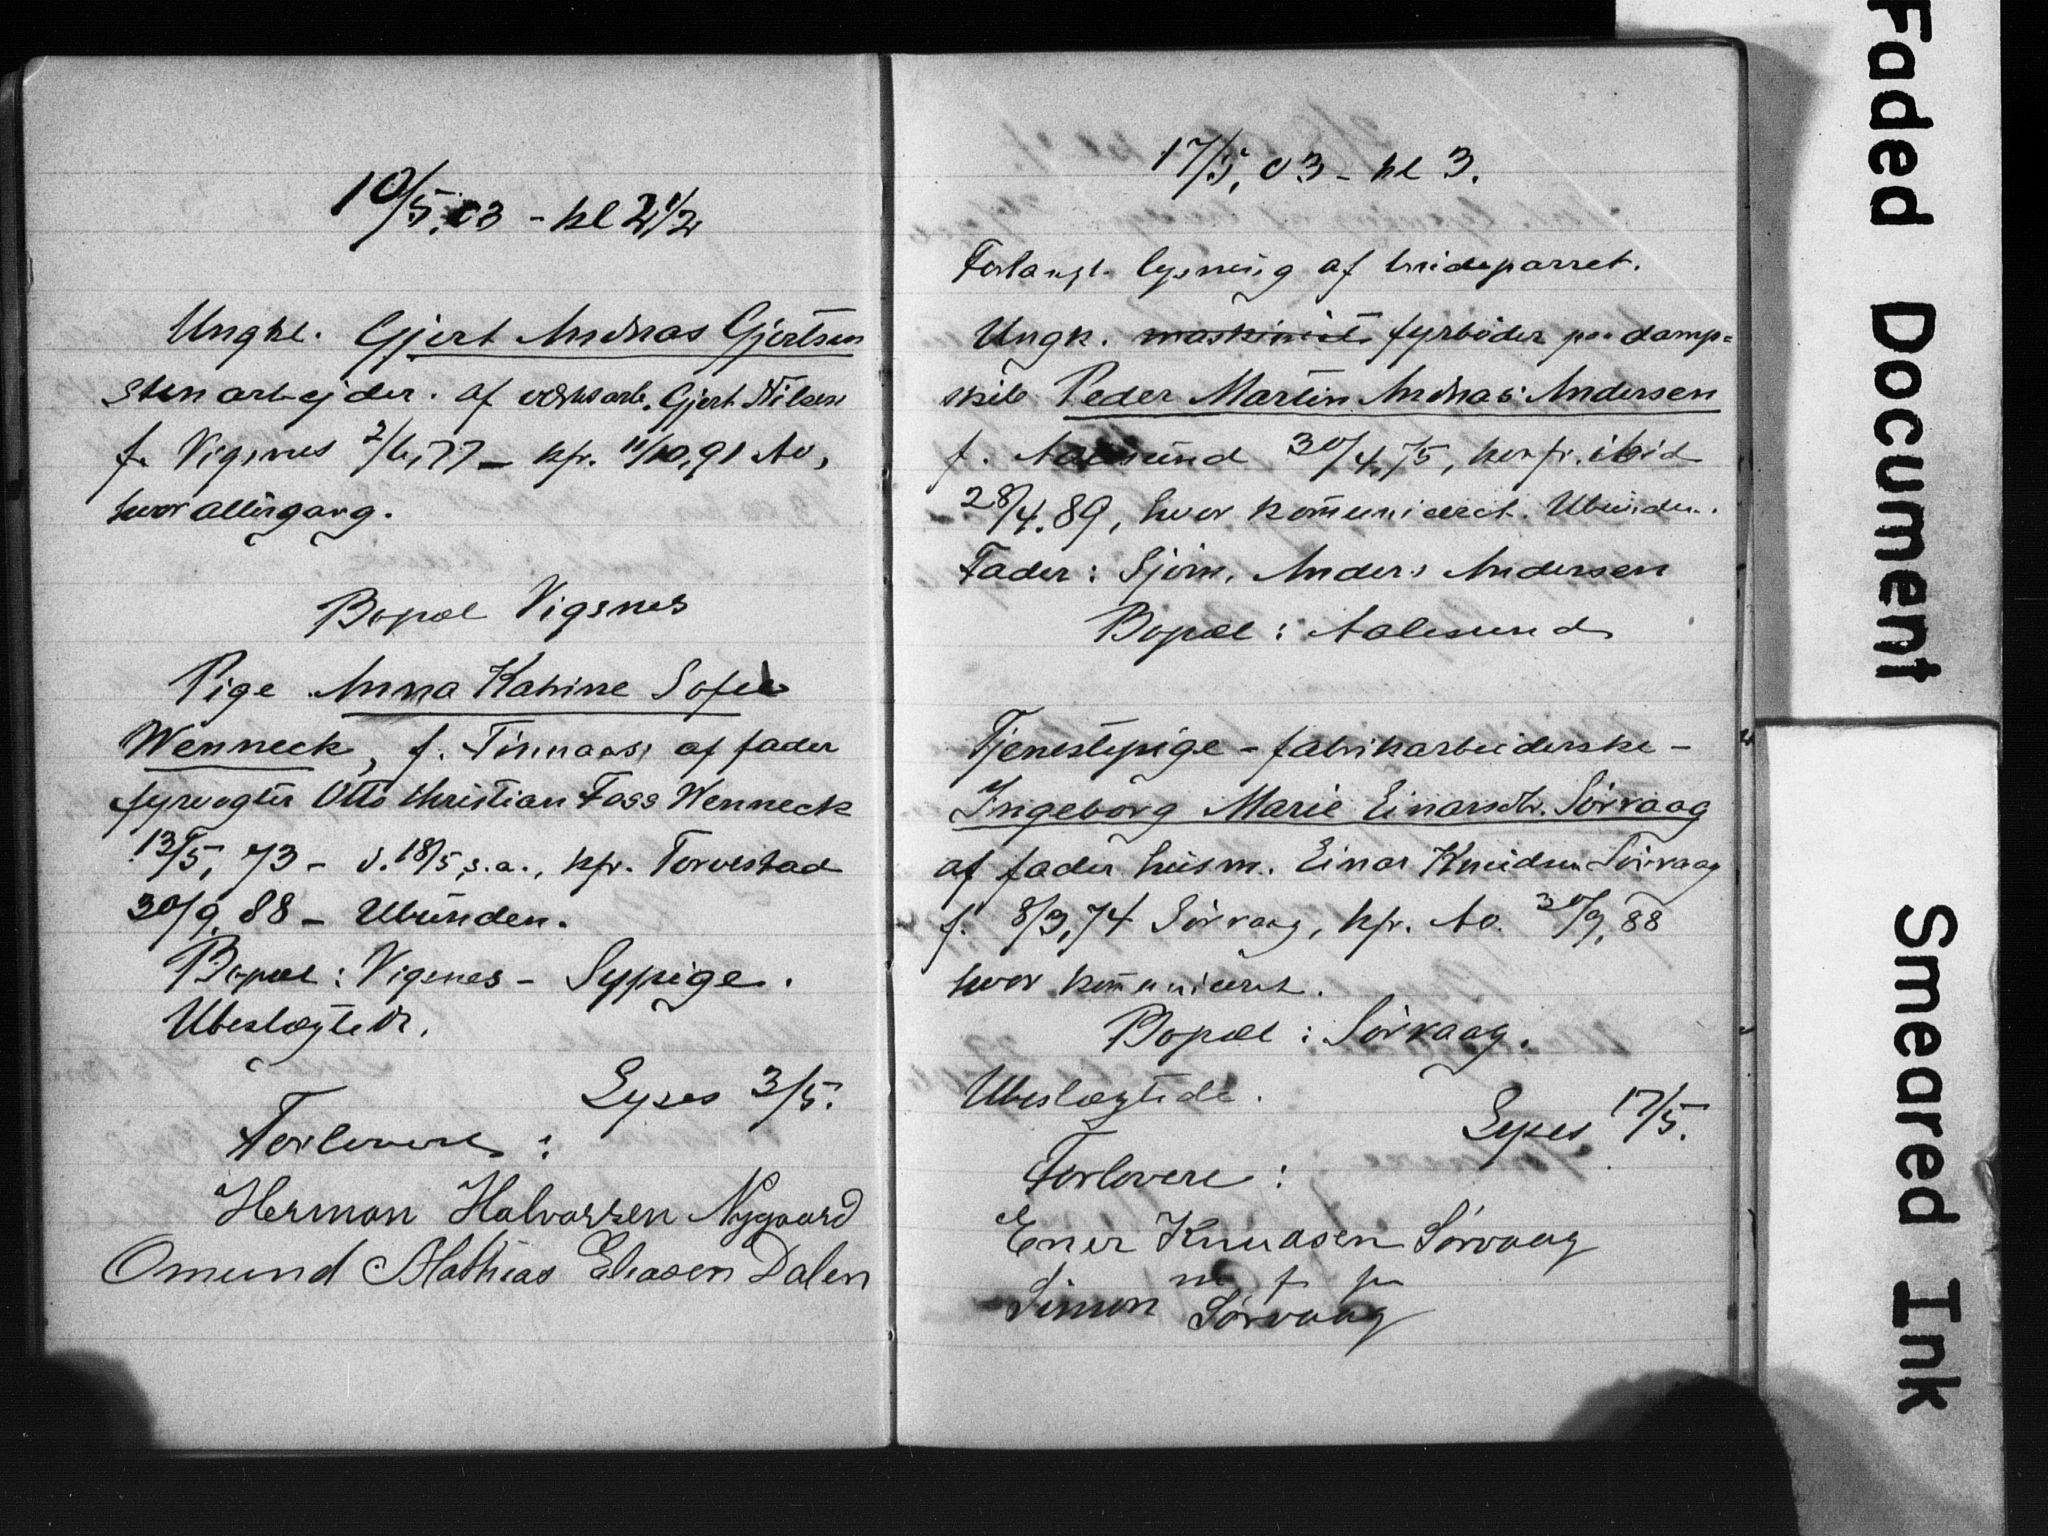 10/5.03 - kl 2 1/2
Ungkl. Gjert Andreas Gjertsen
stenarbejder. af verksarb. Gjert Nilsen
f. Vigsnes 2/6,77 - kfr. 11/10,91 Av,
hvor altergang.
Bopæl Vigsnes
Pige Anna Katrine Sofie
Wenneck, f. Finnaas; af fader
fyrvogter Otto Christian Foss Wenneck
13/5, 73 - d. 18/5 s.a., kfr. Torvestad
30/9 88 - Ubunden.
Bopæl: Vigsnes - Sypige.
Ubeslægtede.
Lyses 3/5.
Forlovere :
Herman Halvorsen Nygaard
Omund Mathias Eliasen Dalen
17/5, 03 - kl 3.
Forlangt lysning af brudeparret.
Ungk. maskinist fyrbøder paa damp=
skib Peder Martin Andreas Andersen
f. Aalesund 30/4,75, konfr. ibid
28/4.89, hvor kommuniceret. Ubunden.
Fader: Sjøm. Anders Andersen
Bopæl : Aalesund
Tjenestepige - fabrikarbeiderske -
Ingeborg Marie Einarsdtr. Sørvaag
af fader husm. Einar Knudsen Sørvaag
f. 8/3,74 Sørvaag, kfr. Av. 30/9,88
hvor kommuniceret.
Bopæl : Sørvaag.
Ubeslægtede.
Lyses 17/5.
Forlovere :
Ener Knudsen Sørvaag
m f p
Simon Sørvaag
Faded Document
Smeared Ink